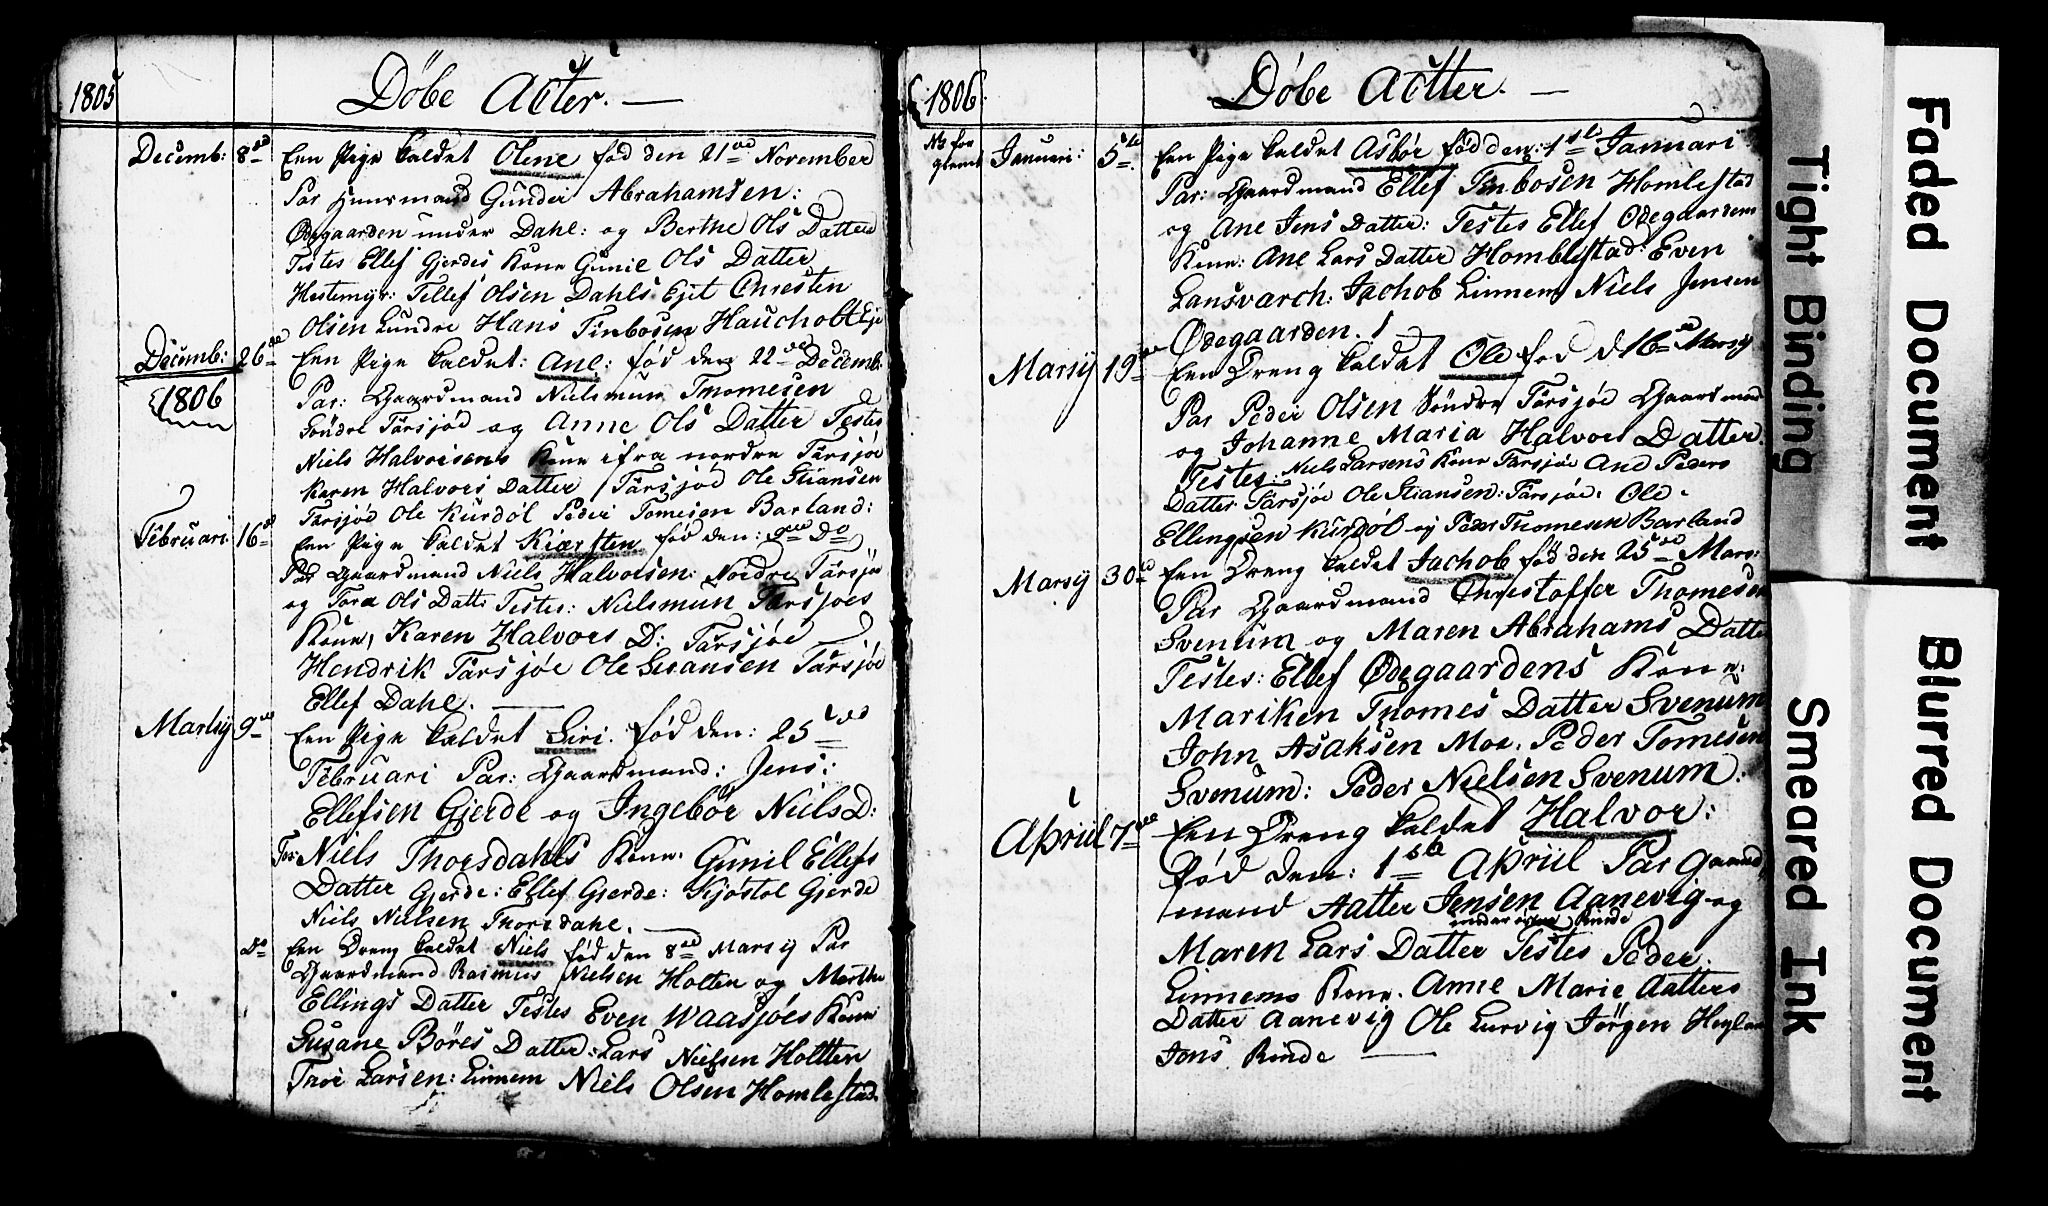 1805 Döbe Acter. —
Decemb: 8de Een Pige kaldet Olene fød den 21de November
Par Huusmand Gunder Abrahamsen:
Ødegaarden under Dahl: og Berthe Ols Datter
Testes Ellef Gjerdes Kone Gunil Ols Datter
Hestemyr: Tellef Olsen Dahls Ejet Chresten
Olsen Lundre Hans Tinbosen Haucholt Eje
Decemb: 26de Een Pige kaldet: Ane: fød den 22de Decemb:
1806 Par: Gaardmand Nielsmun Thomesen
Søndre Tårsjød og Anne Ols Datter Testes
Niels Halvorsens Kone ifra nordre Tårsjøe
Karen Halvors Datter Tårsjød Ole Stiansen
Tårsjød Ole Kurdöl Peder Tomesen Barland:
Februari 16de Een Pige kaldet Kiærsten fød den: Do
Par Gaardmand Niels Halvorsen: Nordre Tårsjøe
og Tora Ols Datt: Testes: Nielsmun Tårsjøes
Kone, Karen Halvors D: Tårsjøe
Hendrik Tårsjøe Ole Stiansen Tårsjøe
Ellef Dahl. —
Martsy 9de Een Pige kaldet Siri. fød den: 25de
Februari Par: Gaardmand: Jens:
Ellefsen Gjerde og Ingebör Niels D:
Tes: Niels Thorsdahls Kone: Gunil Ellefs
Datter Gjerde: Ellef Gjerde: Kjöstol Gjerde
Niels Nielsen Thorsdahl. —
Do Een Dreng kaldet Niels fød den 8de Marsy Par
Gaardmand Rasmus Nielsen Holten og Marthe
Ellings Datter Testes Even Waasjøes Kone
Susane Böres Datter: Lars Nielsen Holtten
Thor Larsen: Linnem Niels Olsen Homlestad
1806. Döbe Actter. —
No for glemt Januari: 5te Een Pige kaldet Asbör fød den: 1ste Januari
Par: Gaardmand Ellef Tinbosen Homlestad
og Ane Jens Datter: Testes Ellef Ødegaardens
Kone: Ane Lars Datter Homblestad: Even
Lansvarch: Jachob Linnem Niels Jensen
Ødegaarden.
Marsy 19de Een Dreng kaldet Ole fød d 16de Marsy
Par Peder Olsen Søndre Tårsjøe Gaardmand
og Johanne Maria Halvors Datter:
Testes: Niels Larsens Kone Tårsjøe Ane Peders
Datter Tårsjøe Ole Stiansen: Tårsjøe: Ole
Ellingsen Kurdöl og Peder Thomesen Barland
Marsy 30de Een Dreng kaldet Jachob fød den 25de Mars:
Par Gaardmand Chrestoffer Thomesen
Svenum og Maren Abrahams Datter
Testes: Ellef Ødegaardens Kone:
Mariken Thomes Datter Svenum
John Asaksen Moe. Peder Tomesen
Svenum: Peder Nielsen Svenum:
Apriil 7de Een Dreng kaldet Halvor:
fød den: 1ste Apriil Par Gaard
mand Aatter Jensen Aanevig og
under Rinde
Maren Lars Datter Testes Peder
Linnems Kone. Anne Marie Aatters
Datter Aanevig Ole Lurvig Jörgen Heglan
Jens Rinde —
Faded Document
Tight Binding
Blurred Document
Smeared Ink